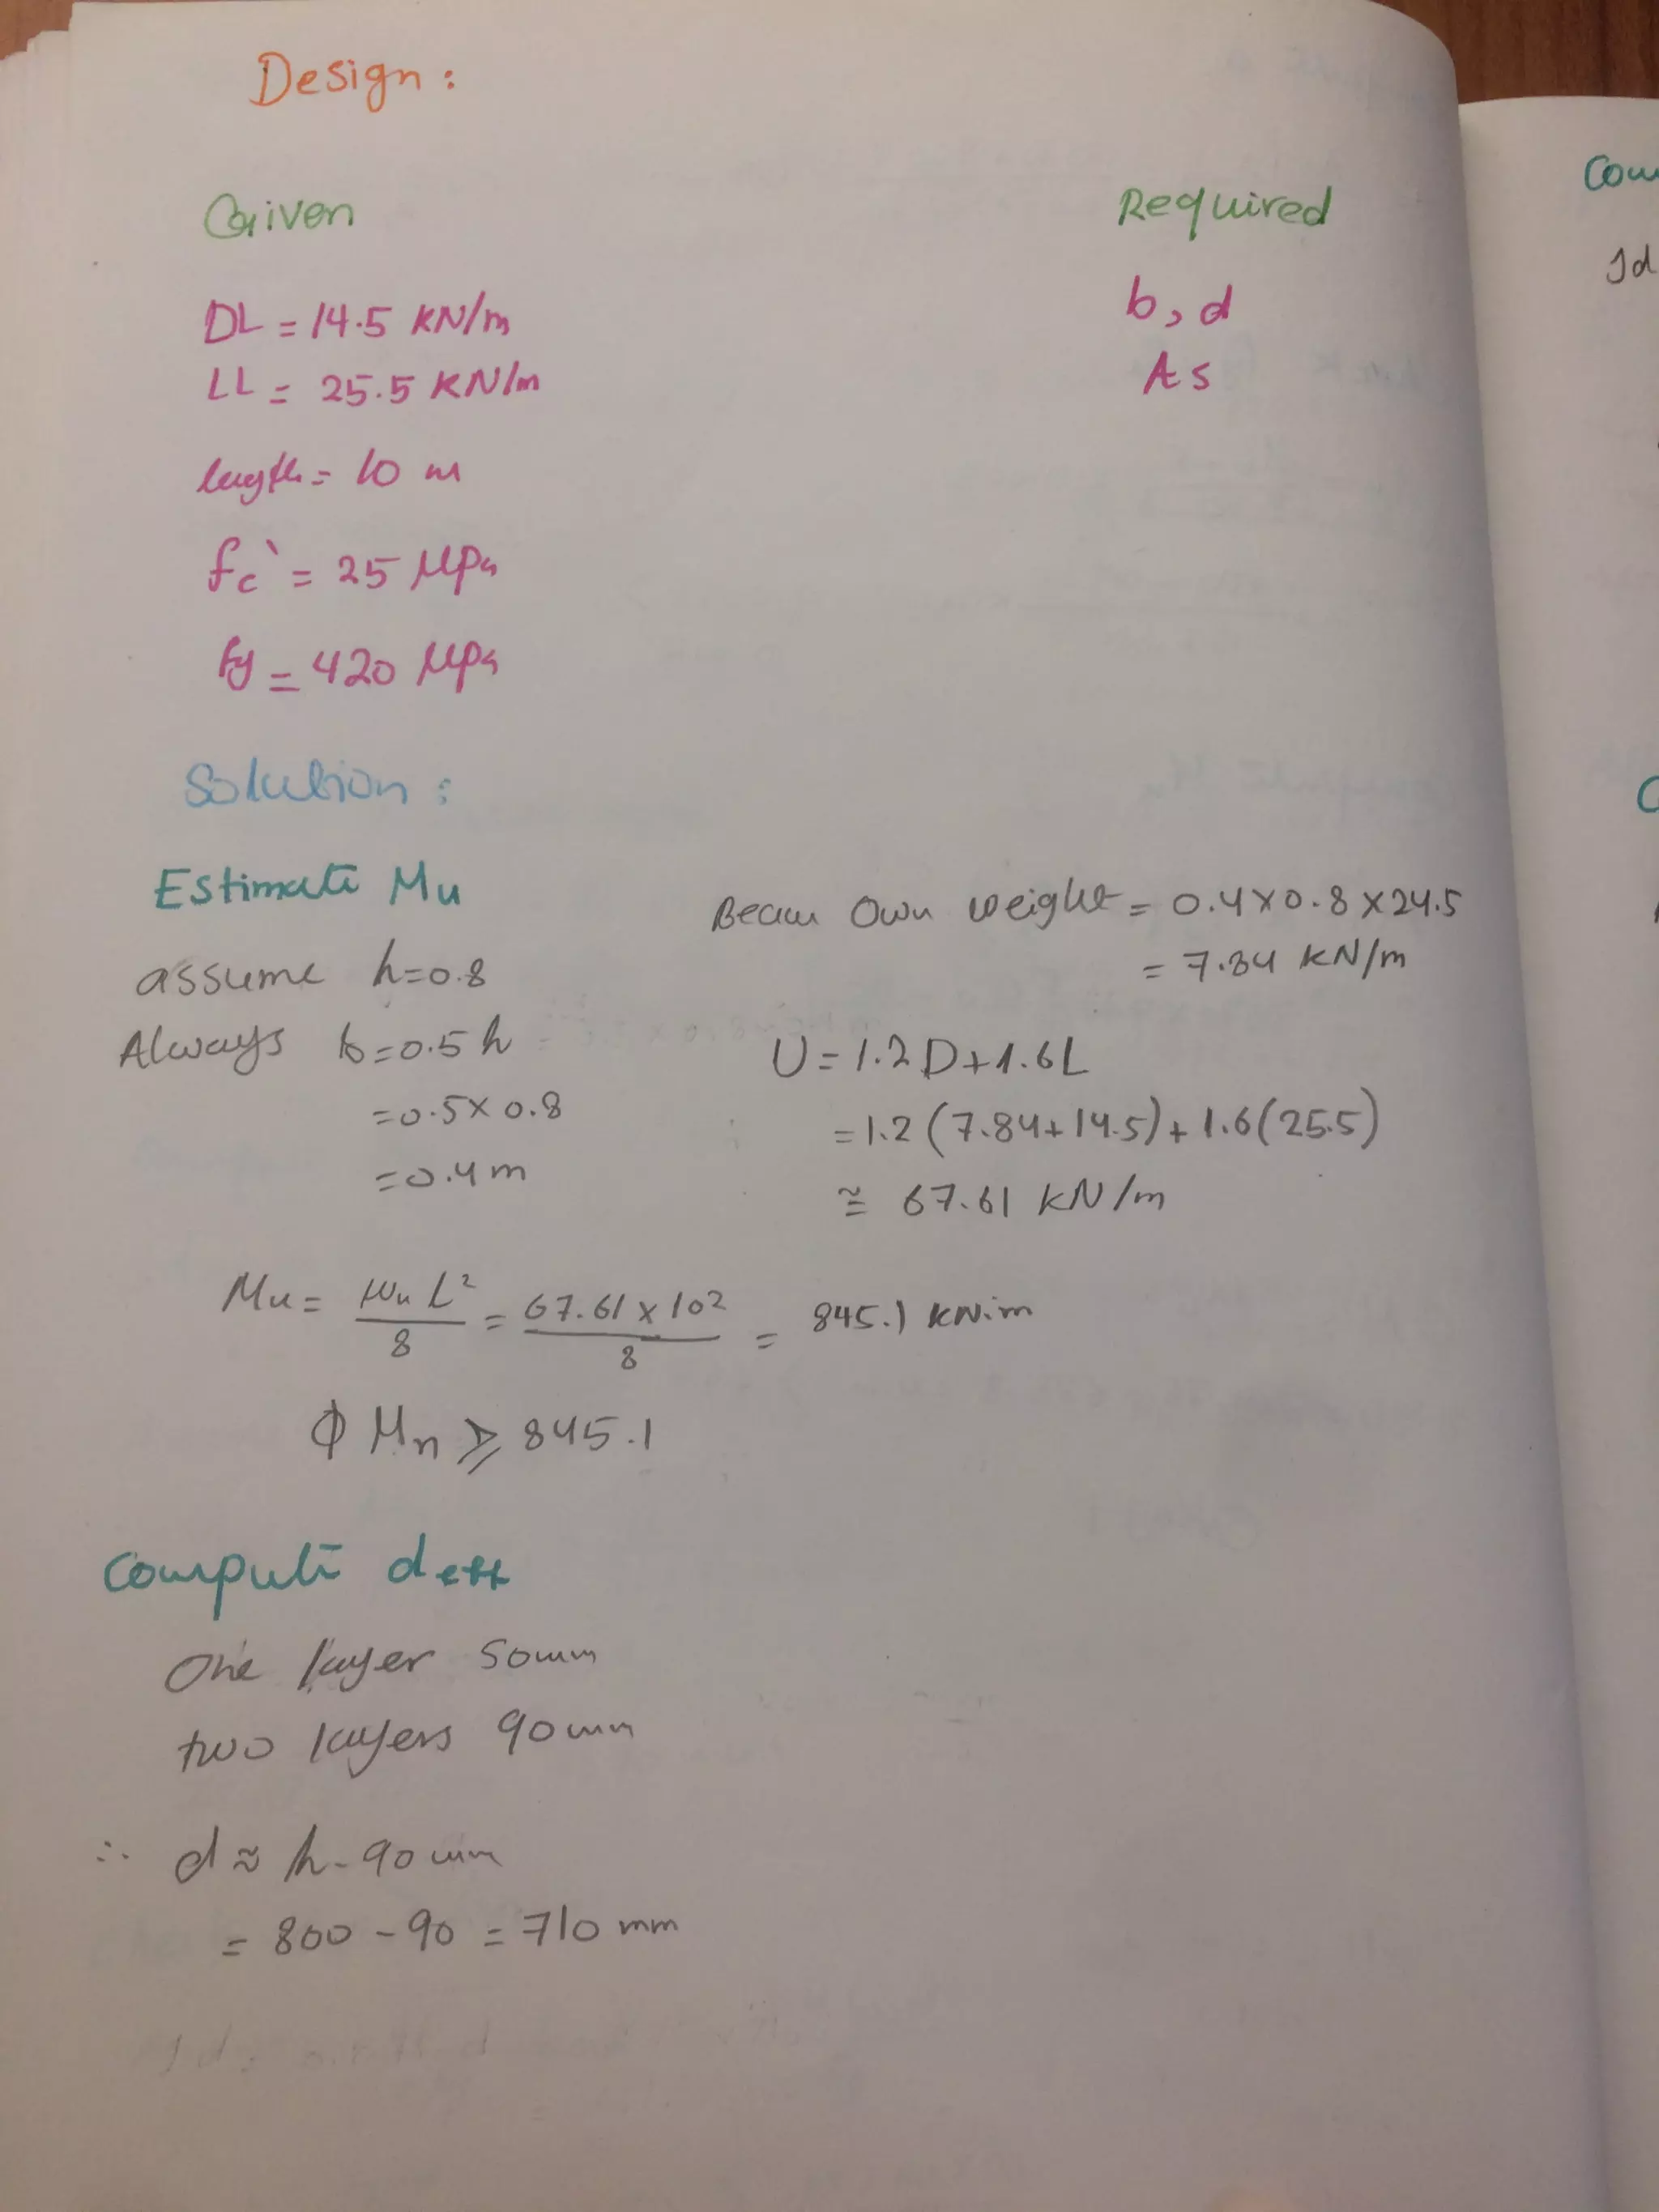 Design :
Given
Required
DL = 14.5 KN/m
LL = 25.5 KN/m
length = 10 m
fc` = 25 MPa
fy = 420 MPa
b, d
As
Solution :
Estimate Mu
assume h=0.8
Always b=0.5 h
=0.5×0.8
=0.4m
Beam Own weight = 0.4×0.8×24.5
= 7.84 KN/m
U = 1.2D+1.6L
=1.2(7.84+14.5)+1.6(25.5)
≅ 67.61 KN/m
Mu = Wu L² / 8 = 67.61 × 10² / 8 = 845.1 KN.m
ϕ Mn ≥ 845.1
Compute deff
One layer 50mm
two layers 90mm
∴ d ≈ h - 90mm
= 800 - 90 = 710 mm
Com
Jd
C